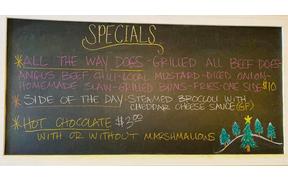 SPECIALS
*ALL THE WAY DOGS-GRILLED ALL BEEF DOGS-
ANGUS BEEF CHILI-LOCAL MUSTARD-DICED ONION-
HOMEMADE SLAW-GRILLED BUNS-FRIES-ONE SIDE $10
* SIDE OF THE DAY-STEAMED BROCCOLI WITH
CHEDDAR CHEESE SAUCE (GF)
* HOT CHOCOLATE $3.00
WITH OR WITHOUT MARSHMALLOWS